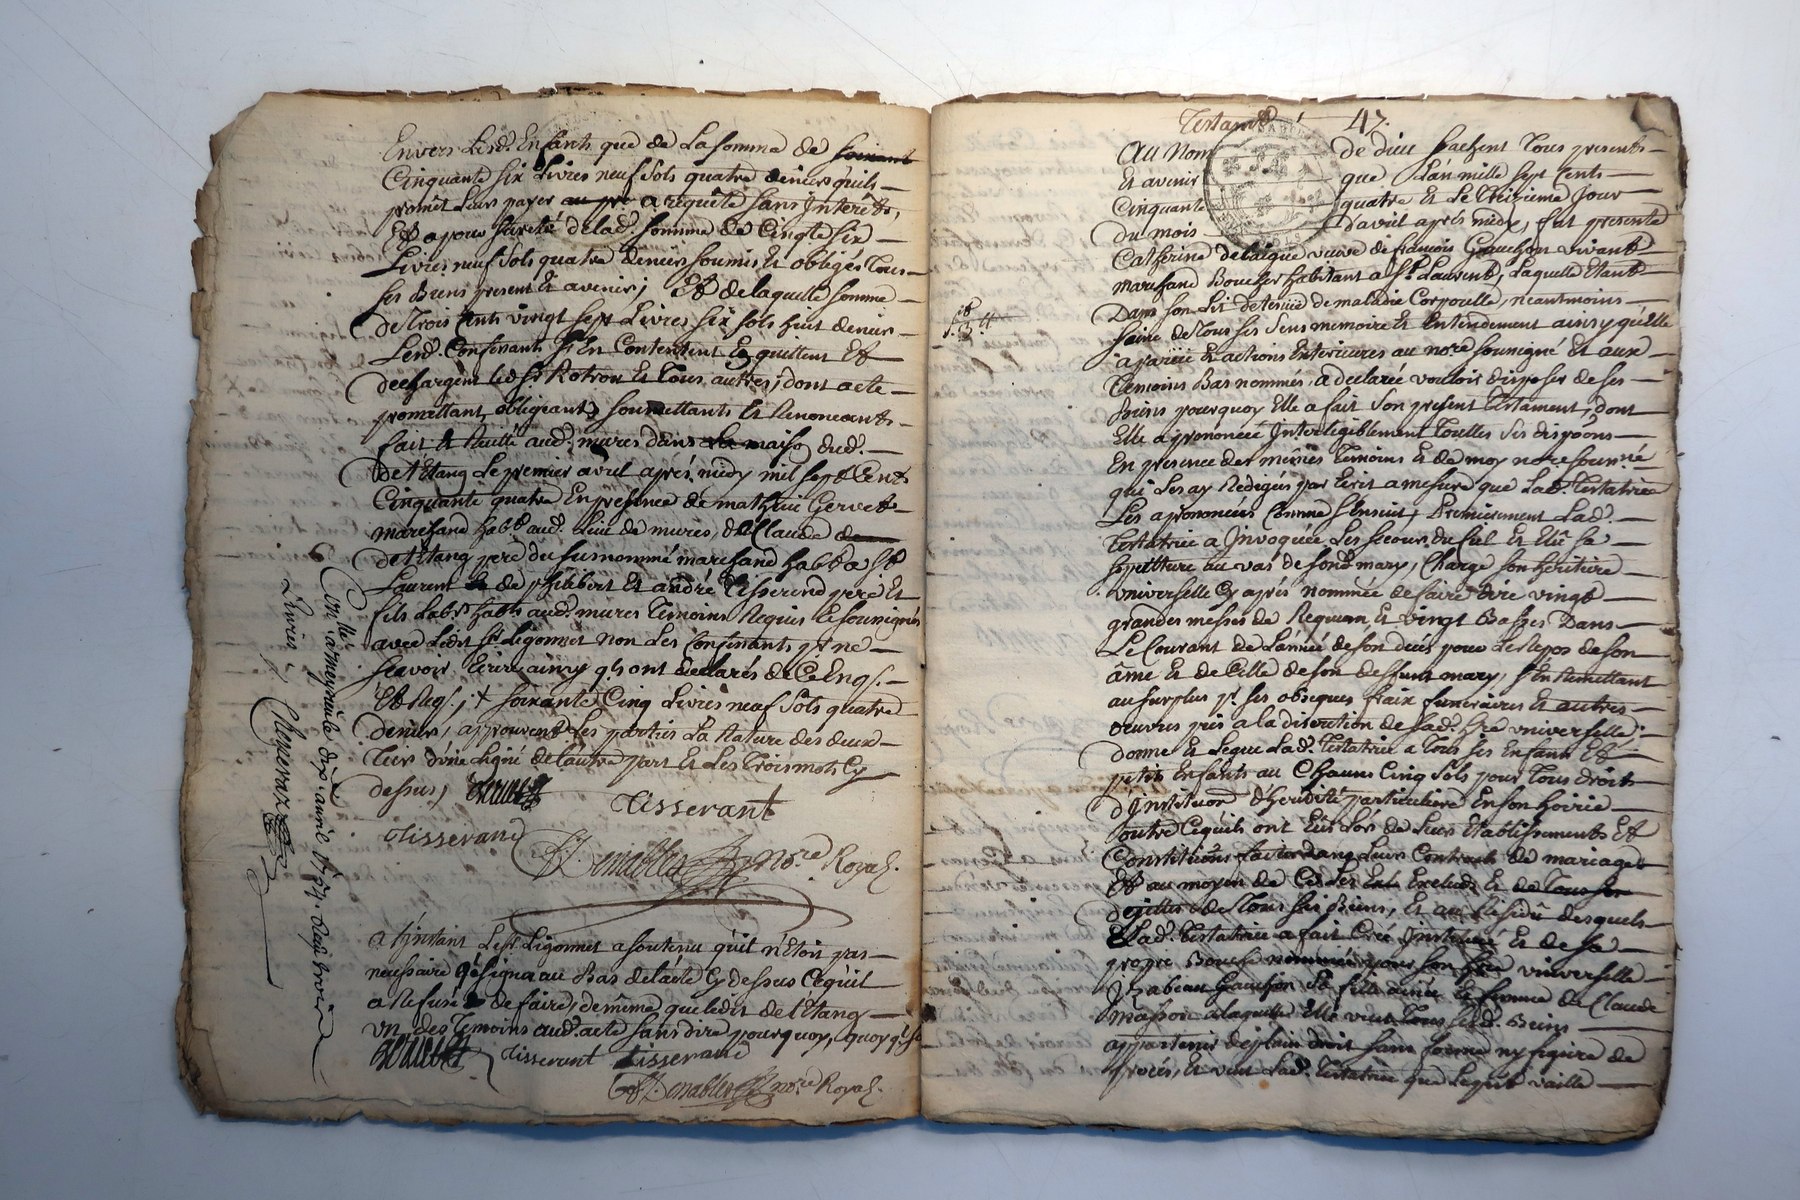 Envers Lesd. Enfants que de La somme de soixant
Cinquante six Livres neuf sols quatre deniers quils
promet Leur payer au pre a requête sans Interêts,
Et a pour sureté de lad. somme de Cinqte six
Livres neuf sols quatre deniers soumis Et obligés Tous
ses Biens present Et avenir; Et de laquelle somme
de Trois Cents vingt sept Livres six sols huit deniers
Lesd. Confessants s'En Contentent Quittent Et
dechargent led. Sr Rotron Et Tous autres; dont acte
promettant, obligeants, soumettants Et Renonceants
fait Et Recitté aud. mures dans La maison dud.
De l'Etang Le premier avril aprés midy mil sept Cents
Cinquante quatre En presence de mathieu Gervet
marchand habt aud. Lieu de mures, & Claude de
de l'Etang pere du susnommé marchand habt a St
Laurent de de philibert Et andré Tisserend pere Et
fils Labrs habts aud. mures Temoins Requis Le soussignés
avec Ledit Sr Ligonnet non Les Confessants pr ne
scavoir Ecrire ainsy qls ont declarés de Ce Enqs.
Et Reqs.; + soixante Cinq Livres neuf sols quatre
deniers, approuvent Les parties La Rature des deux
Tiers d'une Ligne de l'autre part Et Les Trois mots Cy
dessus,
Tisserant
Tisserand
Desnables nore Royal.
a l'instant Le Sr Ligonnet a soutenu quil n'Etoit pas
necessaire q'il signa au Bas de l'acte Cy dessus Ce quil
a Refusé de faire, de même que ledit de l'Etang
un des Temoins aud. acte sans dire pourquoy, quoy q.
Tisserant Tisserand
Desnables nore Royal.
Conllé a meyrieule dix avril 1754. Reçu trois
Livres
Testamt 47.
Au Nom de dieu sachent Tous presents
Et avenir que L'an mille sept Cents
Cinquante quatre Et Le Treizieme Jour
du mois d'avril aprés midy, fut presente
Catherine delaigue veuve de francois Gauchon vivant
marchand Boucher habitant a St Laurent, Laquelle Etant
Dans son Lit detenüe de maladie Corporelle, neantmoins
saine de Tous ses sens memoire Et Entendement ainsy qu'Elle
a parüe Et actions Exterieures au nore soussigné Et aux
Temoins Bas nommés, a declarée vouloir disposer de ses
Biens pourquoy Elle a fait son present Testament, dont
Elle a prononcé Interligiblement Touttes ses disposons
En presence des mêmes Temoins Et de moy nore soussné
qui Les ay Redegés par Ecrit a mesure que Lad. Testatrice
Les a prononcées Comme s'Ensuit; Premierement Lad.
Testatrice a Invoquée Les secours du Ciel Et Elû sa
sepulture au vas de fondt mary, Charge son heritiere
universelle Cy aprés nommée de faire dire vingt
grandes messes de Requiem, Et vingt Basses Dans
Le Courant de L'année de son decés pour Le Repos de son
âme Et de Celle de son deffunt mary, s'En Remettant
au surplus pr ses obseques fraix funeraires Et autres
oeuvres pies a la discretion de sad. hre universelle:
donne Et Legue Lad. Testatrice a Tous ses Enfants Et
petits Enfants au Chacuns Cinq sols pour Tous droits
d'Institution d'heredité particuliere En son hoirie
outre Ce quils ont Eûs Lors de Leurs Etablissements Et
Constitutions faites dans Leurs Contracts de mariages
Et au moyen de Ce Les Exclud Et de Tous ses
dejettes de Tous ses Biens, Et au Residû desquels
Lad. Testatrice a fait Créé Institué Et de sa
propre Bouche nommée pour son hre universelle
Izabeau Gauchon sa fille ainée Et femme de Claude
masson a laquelle Elle veut Tous sesd. Biens
appartenir de plein droit sans forme ny figure de
procés, Et veut Lad. Testatrice que Le prst vaille